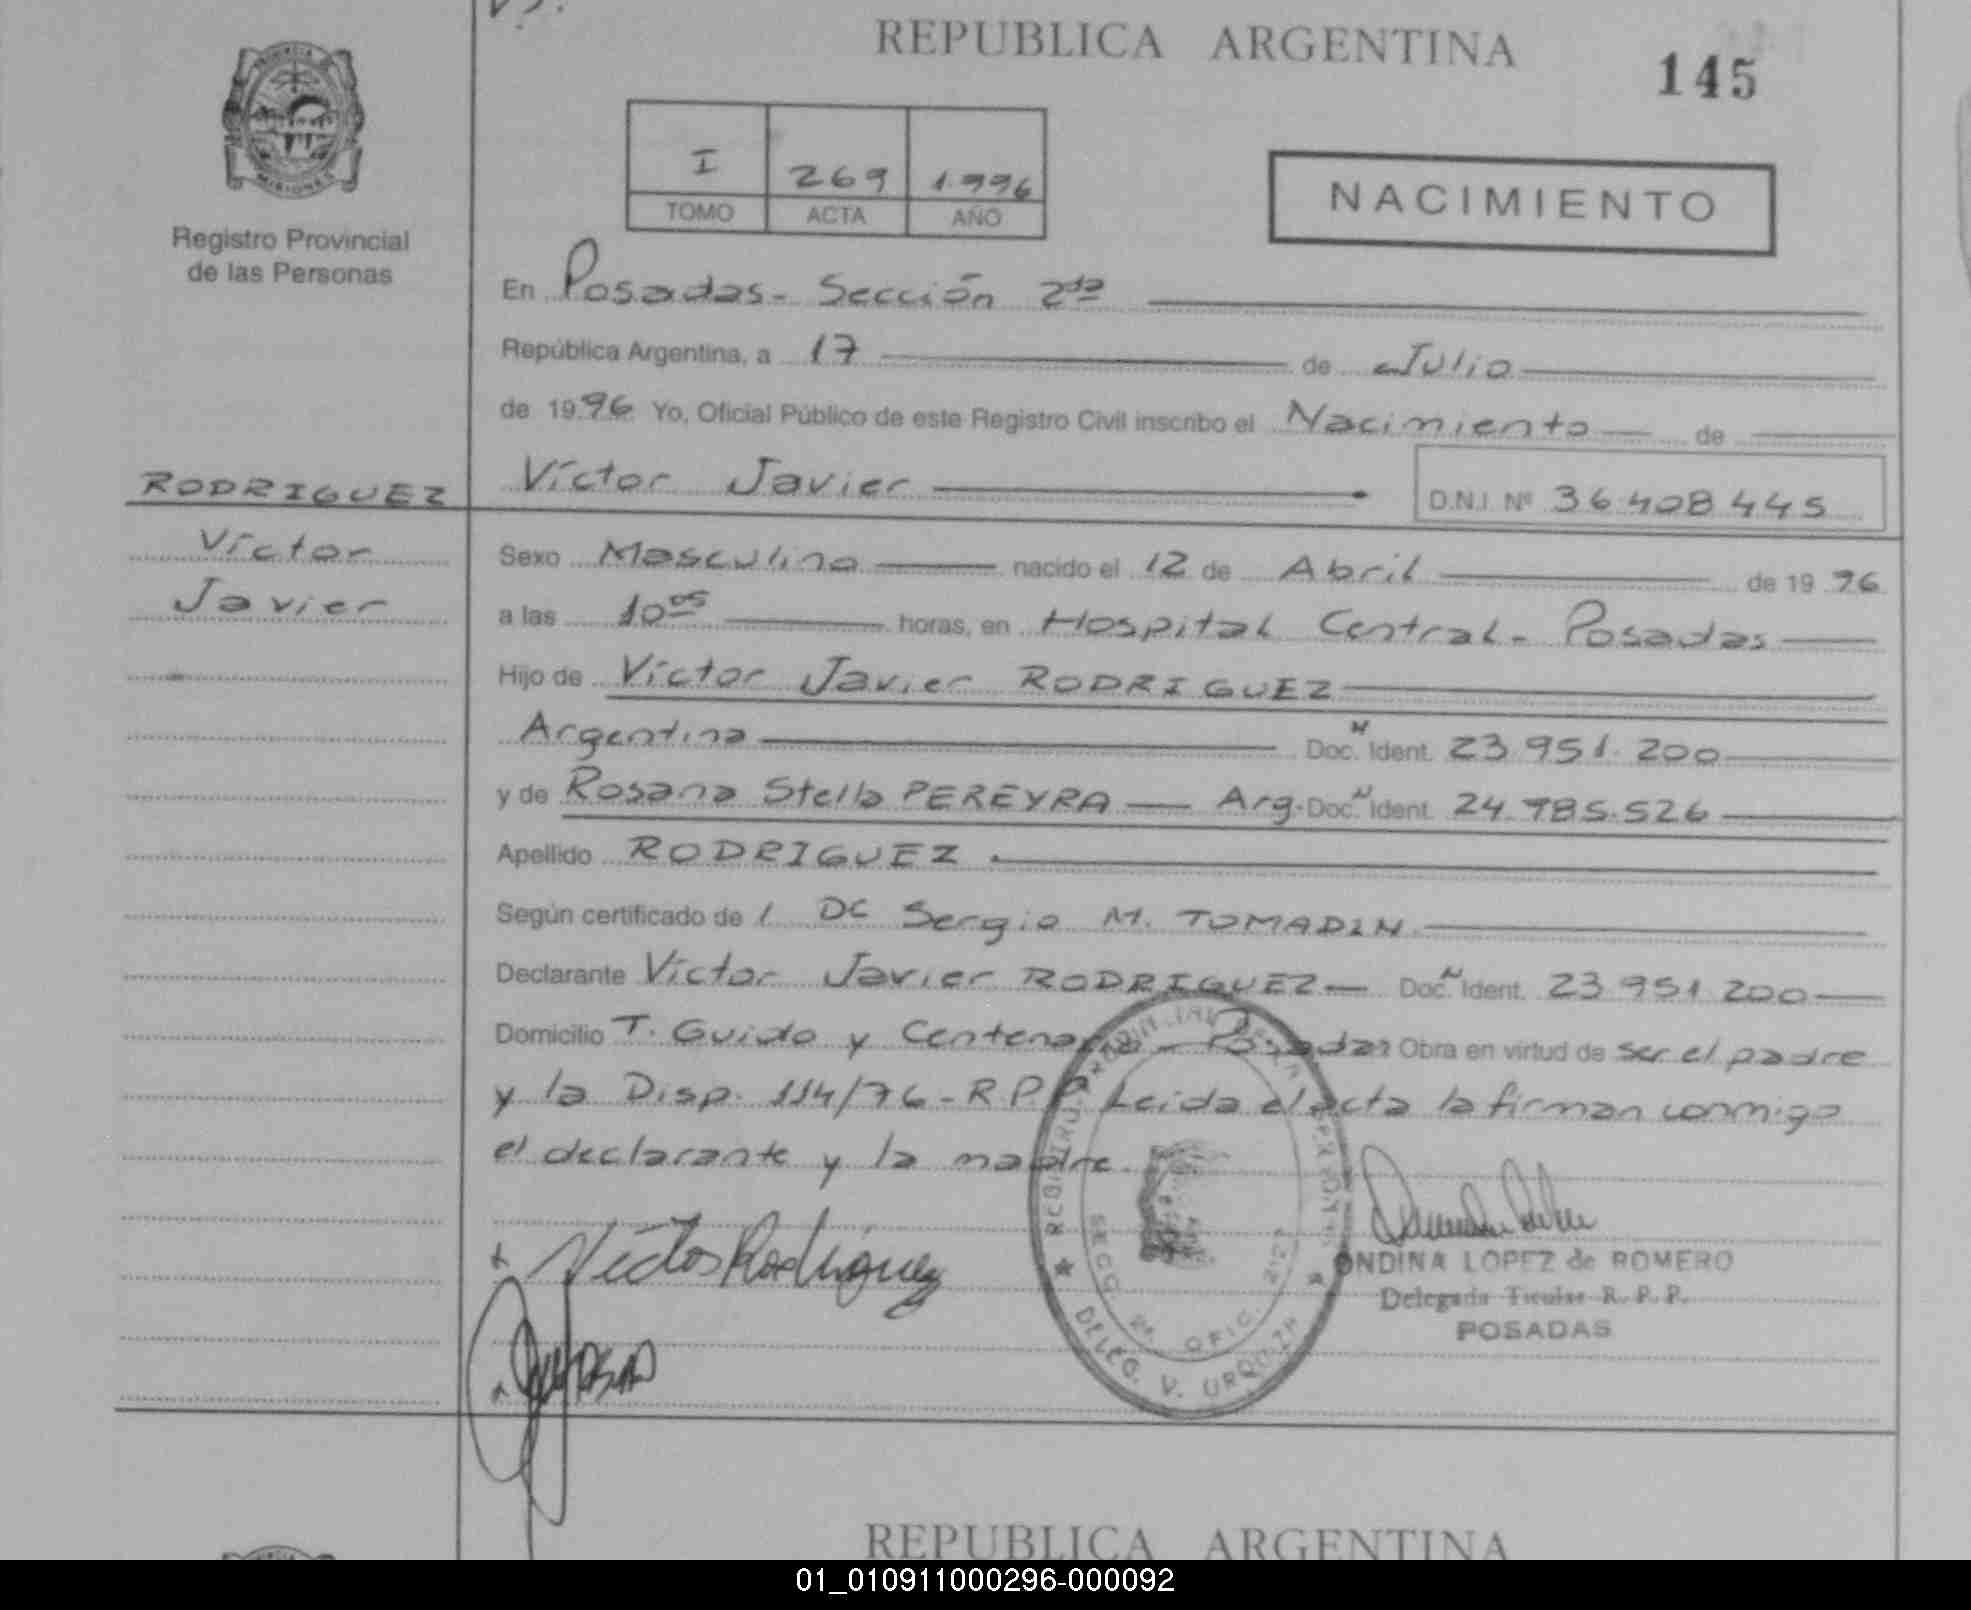 REPUBLICA ARGENTINA
145
PROVINCIA DE
MISIONES
Registro Provincial
de las Personas
I 269 1.996
TOMO ACTA AÑO
NACIMIENTO
En Posadas - Sección 2da
República Argentina, a 17 de Julio
de 1996 Yo, Oficial Público de este Registro Civil inscribo el Nacimiento de
RODRIGUEZ
Víctor
Javier
Víctor Javier D.N.I. Nº 36.408.445
Sexo Masculino nacido el 12 de Abril de 1996
a las 10 05 horas, en Hospital Central - Posadas
Hijo de Víctor Javier RODRIGUEZ
Argentina Doc. N Ident. 23.951.200
y de Rosana Stella PEREYRA — Arg. Doc. N Ident. 24.785.526
Apellido RODRIGUEZ
Según certificado de l Dr Sergio M. TOMADIN
Declarante Víctor Javier RODRIGUEZ — Doc. N Ident. 23.951.200
Domicilio T. Guido y Centenario - Posadas Obra en virtud de ser el padre
y la Disp. 114/76 - R.P.P. Leida el acta la firman conmigo
el declarante y la madre.
Victor Rodriguez
REGISTRO PROVINCIAL DE LAS PERSONAS
SECC. 2a. OFIC. 2127
DELEG. V. URQUIZA
ONDINA LOPEZ de ROMERO
Delegada Titular R. P. P.
POSADAS
REPUBLICA ARGENTINA
01_010911000296-000092